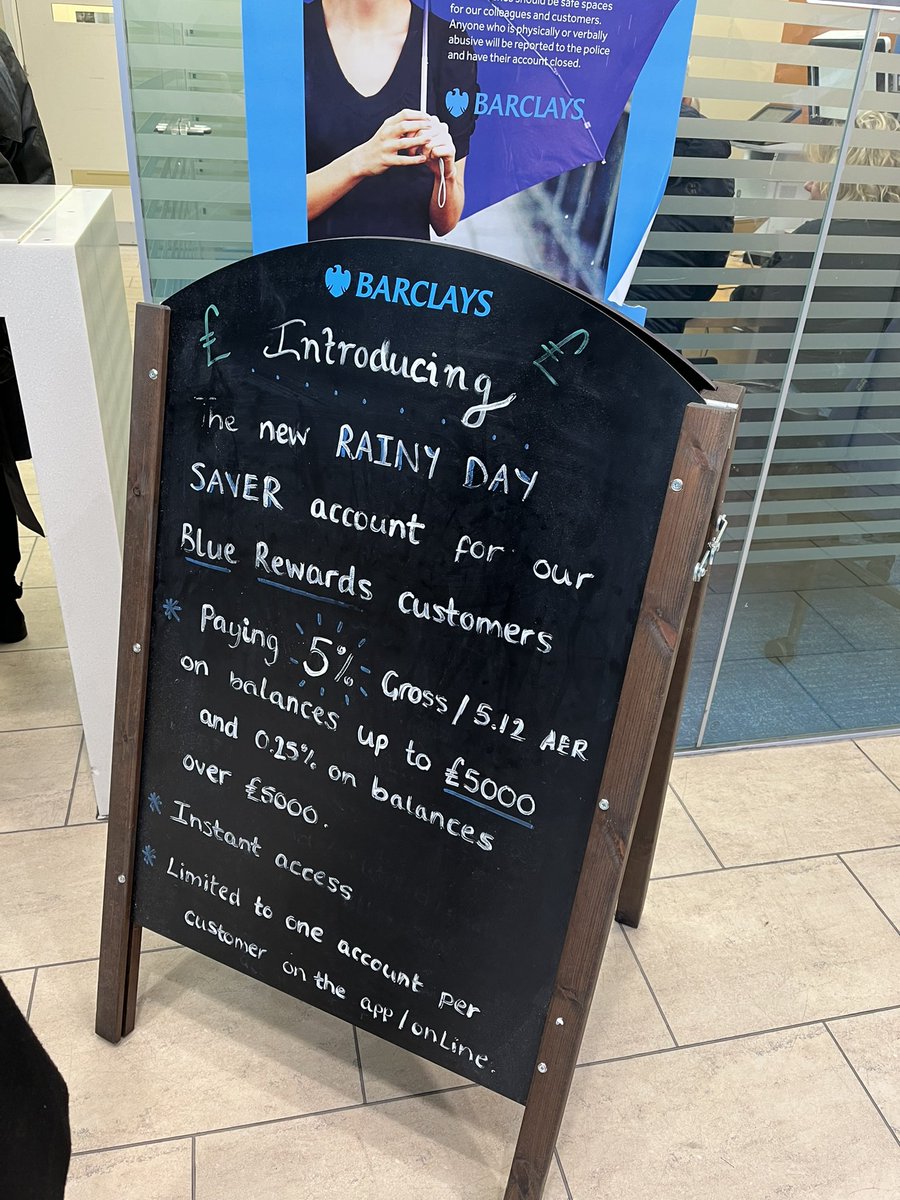 should be safe spaces
for our colleagues and customers.
Anyone who is physically or verbally
abusive will be reported to the police
and have their account closed.
BARCLAYS
BARCLAYS
£ Introducing £
The new RAINY DAY
SAVER account for our
Blue Rewards customers
* Paying 5% Gross/5.12 AER
on balances up to £5000
and 0.15% on balances
over £5000.
* Instant access
* Limited to one account per
customer on the app/online.